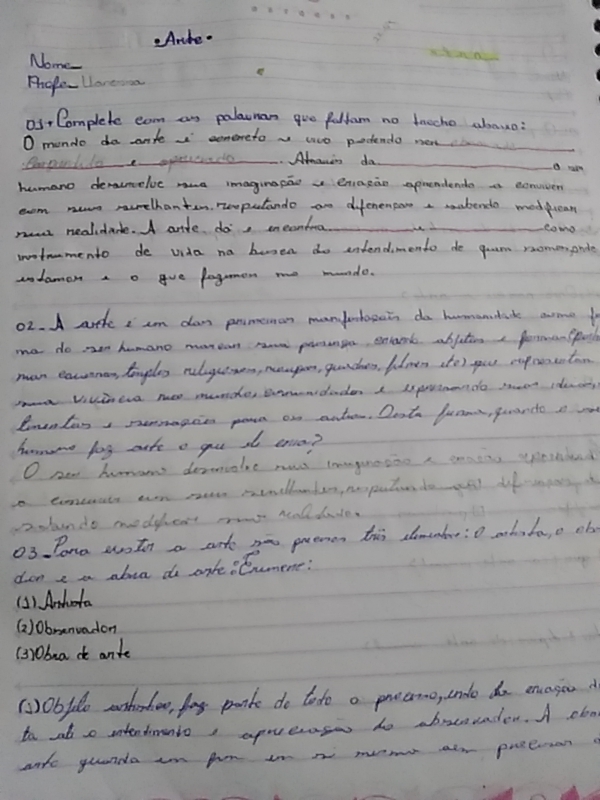 • Arte •
Nome
Profe Vanessa
01 + Complete com as palavras que faltam no trecho abaixo:
O mundo da arte é concreto e vivo podendo ser
e apreciado. Através da o ser
humano desenvolve sua imaginação e criação aprendendo a conviver
com seus semelhantes, respeitando as diferenças e sabendo modificar
sua realidade. A arte dá e encontra e como
instrumento de vida na busca do entendimento de quem somos, onde
estamos e o que fazemos no mundo.
02 - A arte é um das primeiras manifestações da humanidade como for
ma do ser humano marcar sua presença criando objetos e formas
nas cavernas, templos religiosos, roupas, quadros, filmes etc) que representam
sua vivência no mundo, comunicando e expressando suas ideias,
timentos e sensações para os outros. Desta forma, quando o ser
humano faz arte o que ele cria?
O ser humano desenvolve sua imaginação e criação
a conviver com seus semelhantes, respeitando as diferenças e
sabendo modificar sua realidade.
03 - Para existir a arte são precisos três elementos: O artista, o obser
dor e a obra de arte. Enumere:
(1) Artista
(2) Observador
(3) Obra de arte
(3) Objeto artístico, faz parte de todo o processo, indo da criação do
ta até o entendimento e apreciação do observador. A obra
arte guarda um fim em si mesmo sem precisar